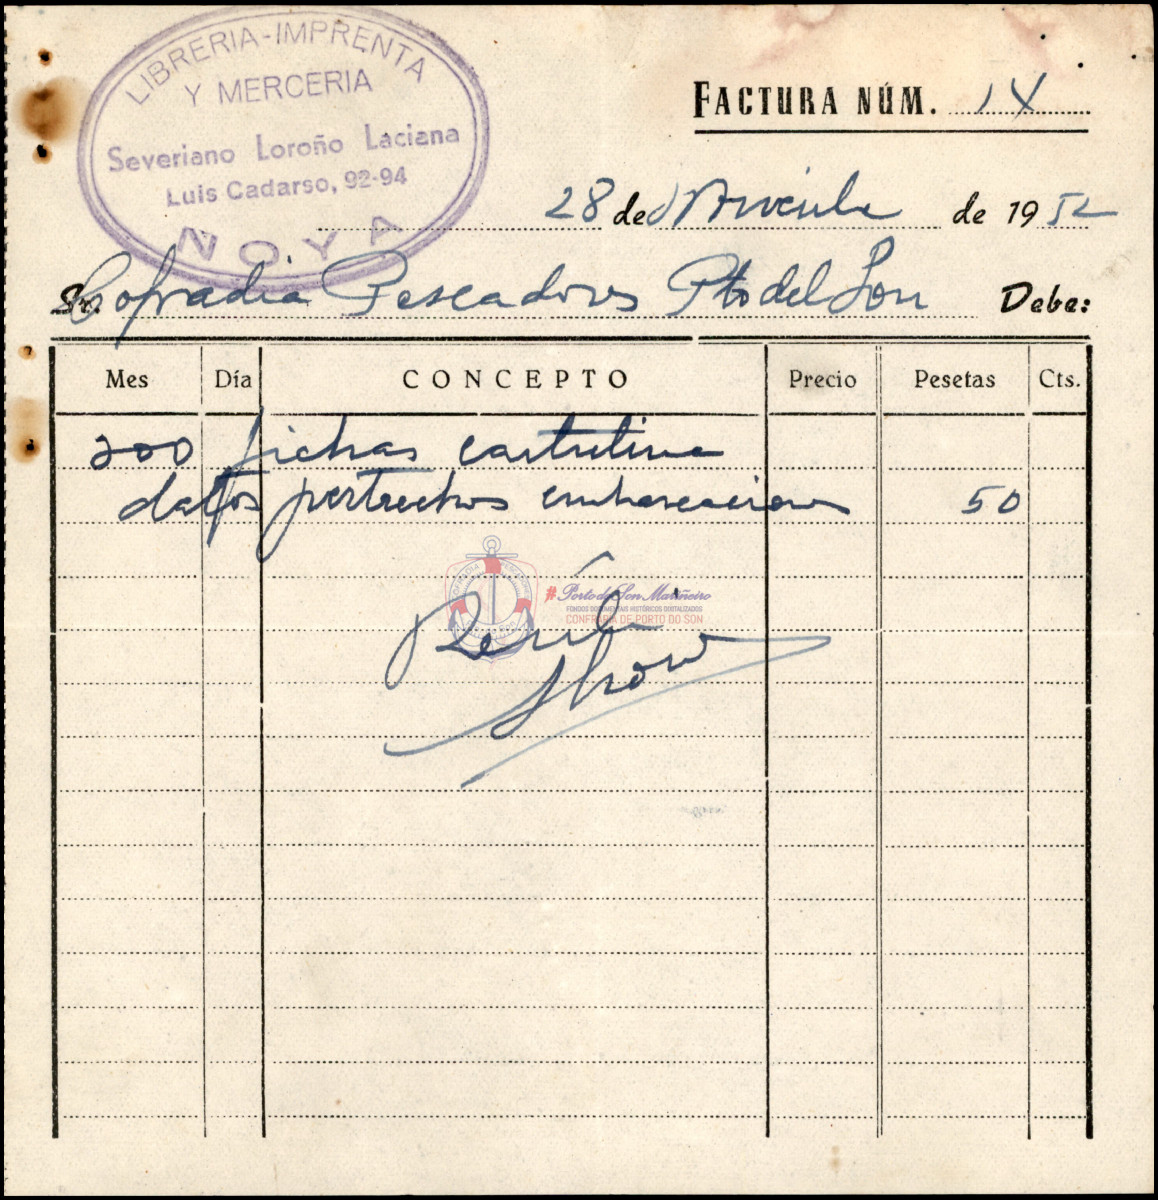 LIBRERIA-IMPRENTA
Y MERCERIA
Severiano Loroño Laciana
Luis Cadarso, 92-94
NOYA
FACTURA NÚM. 14
28 de Noviembre de 1952
Sr. Cofradia Pescadores Pto del Son Debe:
Mes Día CONCEPTO Precio Pesetas Cts.
200 fichas cartulina
datos pertrechos embarcaciones 50
#Porto do Son Mariñeiro
FONDOS DOCUMENTAIS HISTÓRICOS DIXITALIZADOS
CONFRARÍA DE PORTO DO SON
Recibí